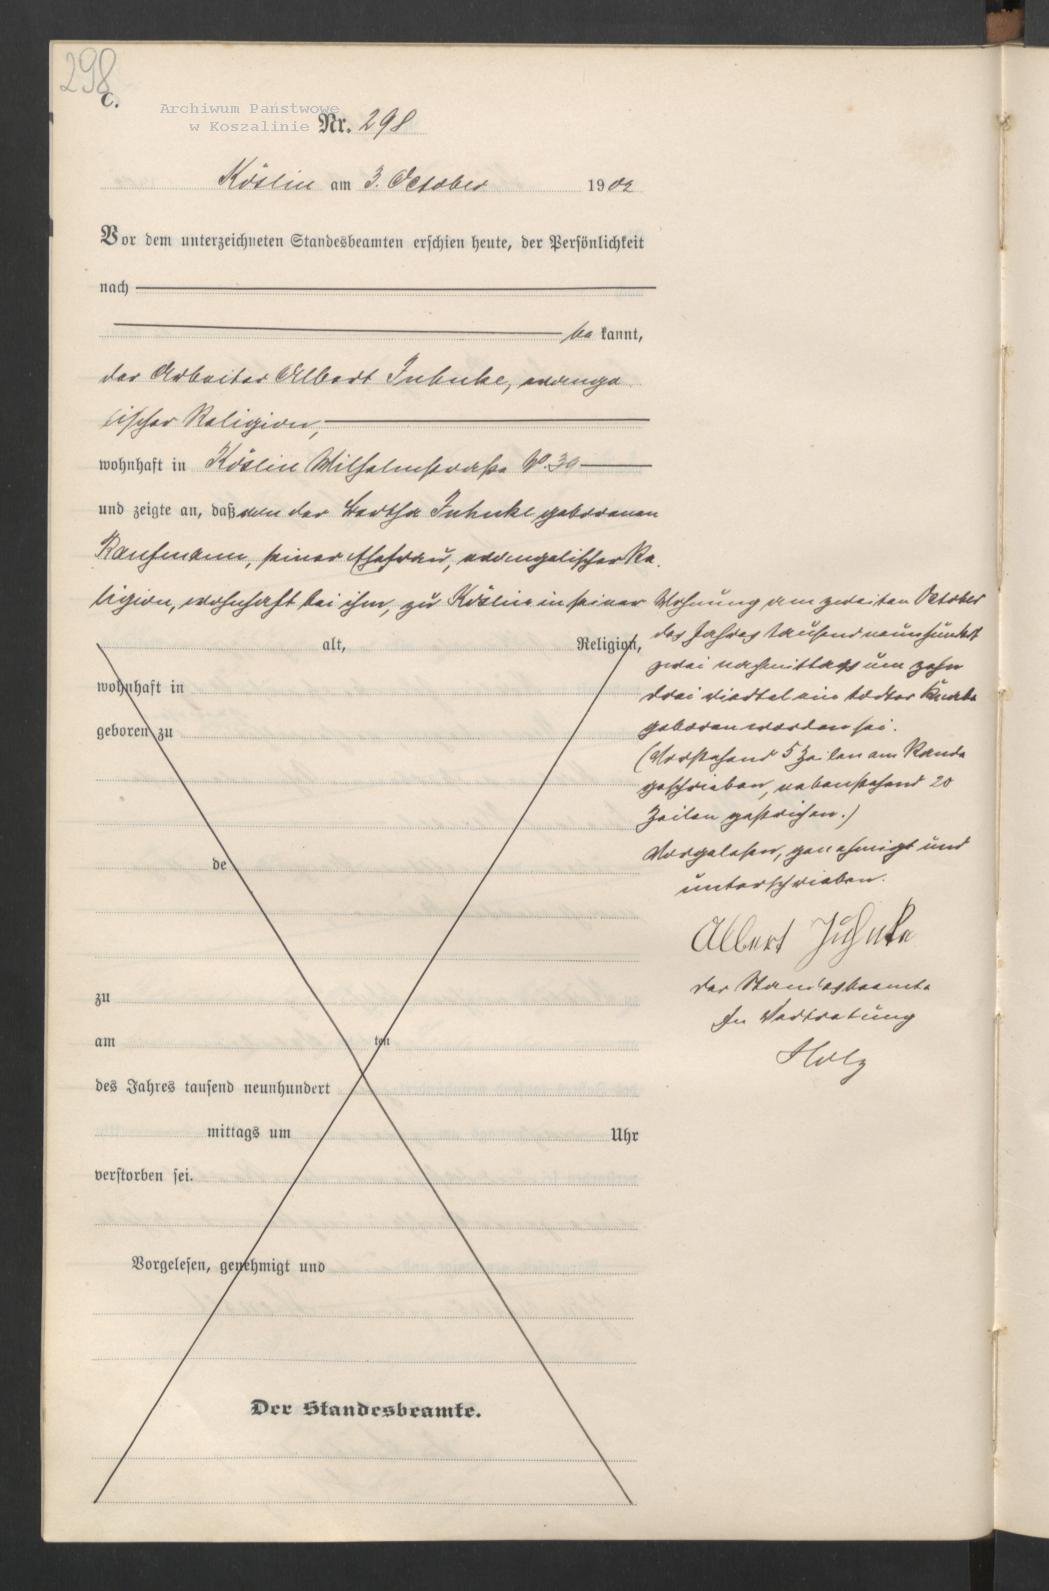 298
C.
Archiwum Państwowe
w Koszalinie
Nr. 298
Köslin am 3. October 1902
Vor dem unterzeichneten Standesbeamten erschien heute, der Persönlichkeit
nach
be kannt,
der Arbeiter Albert Juhnke, evange
lischer Religion,
wohnhaft in Köslin Wilhelmstraße No. 30
und zeigte an, daß von der Bertha Juhnke geborenen
Kaufmann, seiner Ehefrau, evangelischer Re
ligion, wohnhaft bei ihm, zu Köslin in seiner Wohnung am zweiten October
des Jahres tausend neunhundert
zwei nachmittags um zehn
drei viertel ein todter Knabe
geboren worden sei.
(Vorstehend 5 Zeilen am Rande
geschrieben, nebenstehend 20
Zeilen gestrichen.)
Vorgelesen, genehmigt und
unterschrieben.
Albert Juhnke
der Standesbeamte
In Vertretung
Holz
alt, Religion,
wohnhaft in
geboren zu
de
zu
am ten
des Jahres tausend neunhundert
mittags um Uhr
verstorben sei.
Vorgelesen, genehmigt und
Der Standesbeamte.